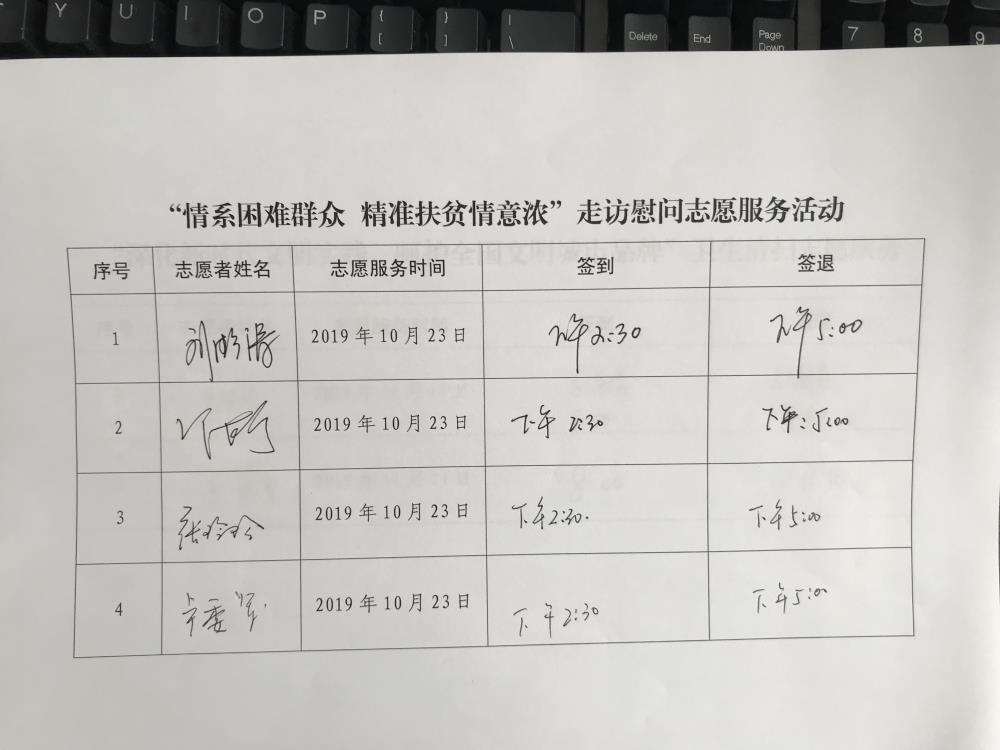 Y U I O P { [ } ] | \ Delete End Page Down 7 8 9
“情系困难群众 精准扶贫情意浓”走访慰问志愿服务活动
序号 志愿者姓名 志愿服务时间 签到 签退
1 2019年10月23日 下午2:30 下午5:00
2 2019年10月23日 下午2:30 下午:5:00
3 张玲玲 2019年10月23日 下午2:30. 下午5:00
4 2019年10月23日 下午2:30 下午5:00